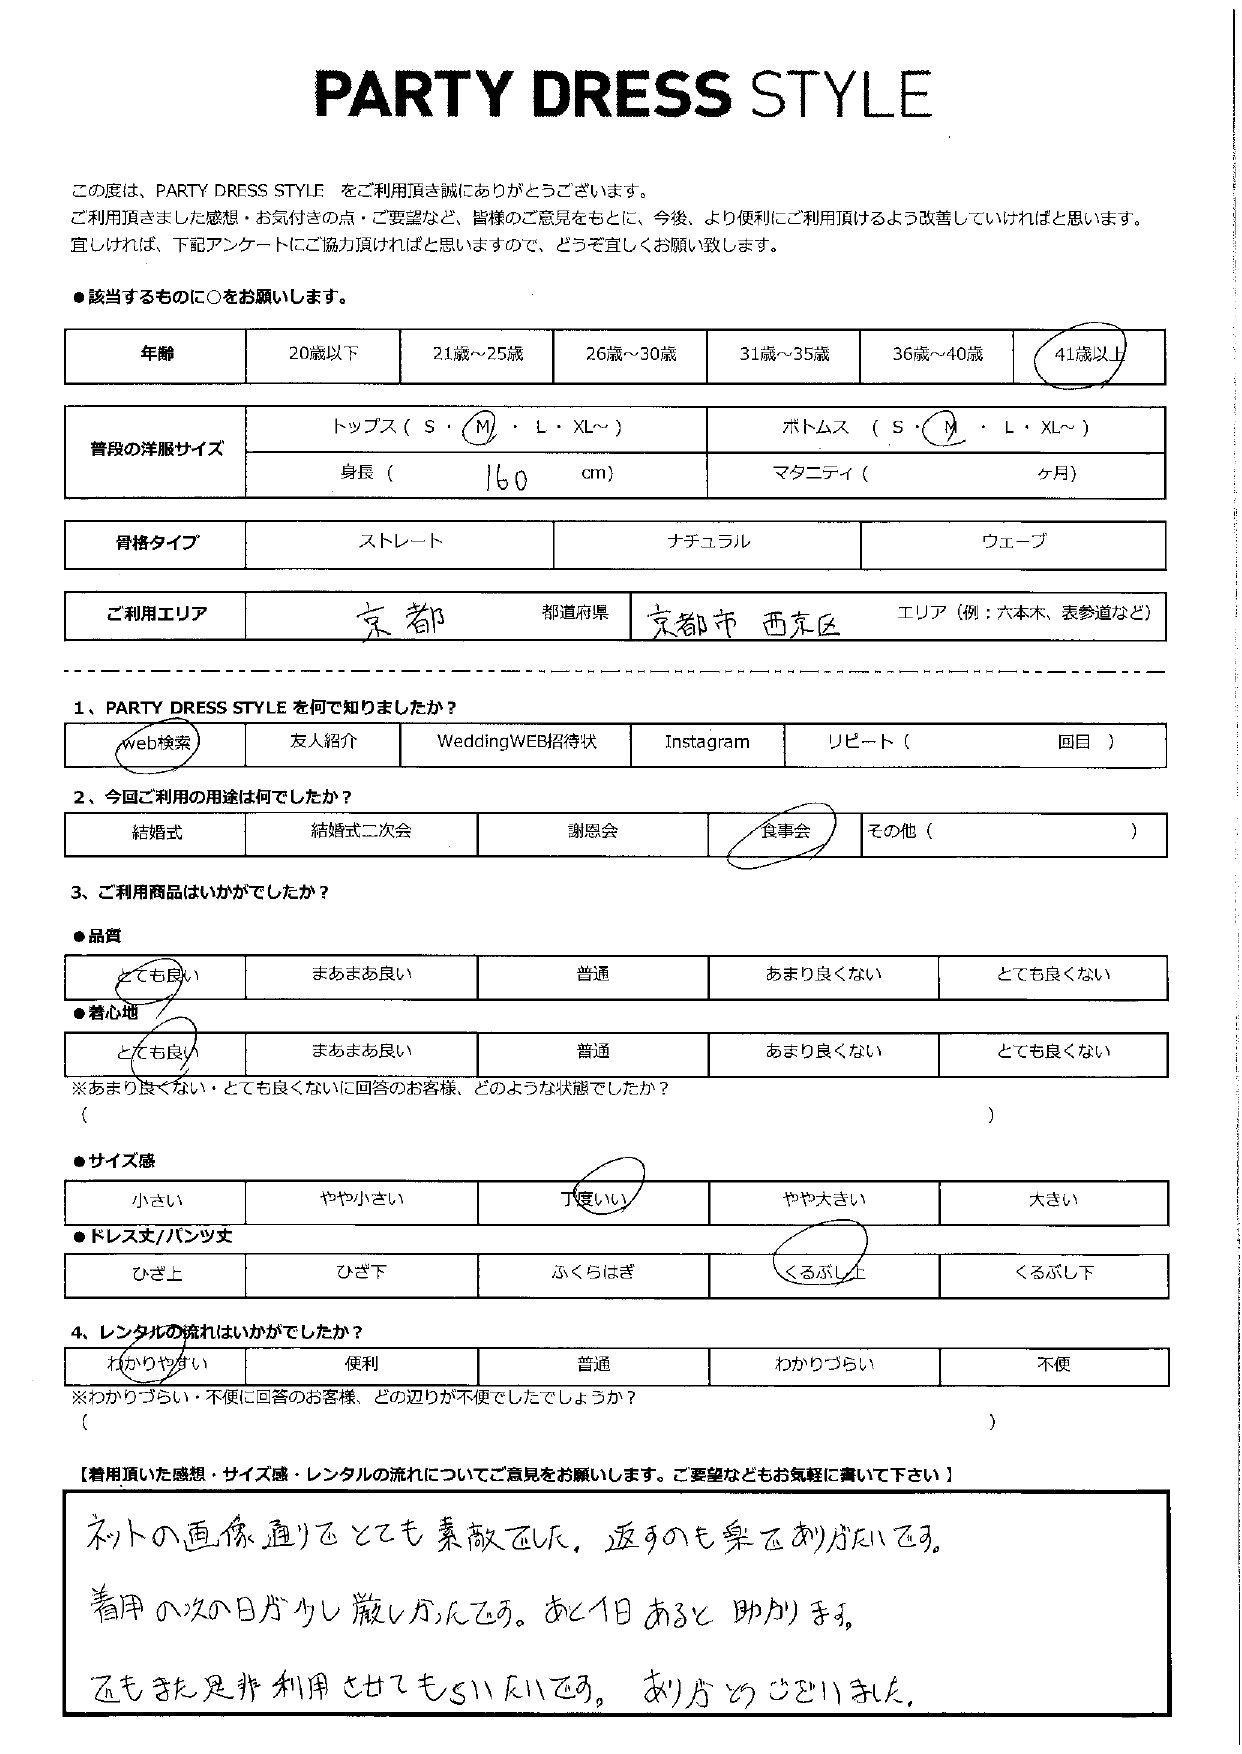 PARTY DRESS STYLE
この度は、PARTY DRESS STYLE をご利用頂き誠にありがとうございます。
ご利用頂きました感想・お気付きの点・ご要望など、皆様のご意見をもとに、今後、より便利にご利用頂けるよう改善していければと思います。
宜しければ、下記アンケートにご協力頂ければと思いますので、どうぞ宜しくお願い致します。
●該当するものに○をお願いします。
年齢 20歳以下 21歳～25歳 26歳～30歳 31歳～35歳 36歳～40歳 41歳以上
普段の洋服サイズ トップス ( S ・ M ・ L ・ XL～ ) ボトムス ( S ・ M ・ L ・ XL～ )
身長 ( 160 cm) マタニティ ( ヶ月)
骨格タイプ ストレート ナチュラル ウェーブ
ご利用エリア 京都 都道府県 京都市 西京区 エリア（例：六本木、表参道など）
1、PARTY DRESS STYLE を何で知りましたか？
web検索 友人紹介 WeddingWEB招待状 Instagram リピート ( 回目 )
2、今回ご利用の用途は何でしたか？
結婚式 結婚式二次会 謝恩会 食事会 その他 ( )
3、ご利用商品はいかがでしたか？
●品質
とても良い まあまあ良い 普通 あまり良くない とても良くない
●着心地
とても良い まあまあ良い 普通 あまり良くない とても良くない
※あまり良くない・とても良くないに回答のお客様、どのような状態でしたか？
( )
●サイズ感
小さい やや小さい 丁度いい やや大きい 大きい
●ドレス丈/パンツ丈
ひざ上 ひざ下 ふくらはぎ くるぶし上 くるぶし下
4、レンタルの流れはいかがでしたか？
わかりやすい 便利 普通 わかりづらい 不便
※わかりづらい・不便に回答のお客様、どの辺りが不便でしたでしょうか？
( )
【着用頂いた感想・サイズ感・レンタルの流れについてご意見をお願いします。ご要望などもお気軽に書いて下さい】
ネットの画像通りでとても素敵でした。返すのも楽でありがたいです。
着用の次の日が少し厳しかったです。あと1日あると助かります。
でもまた是非利用させてもらいたいです。ありがとうございました。